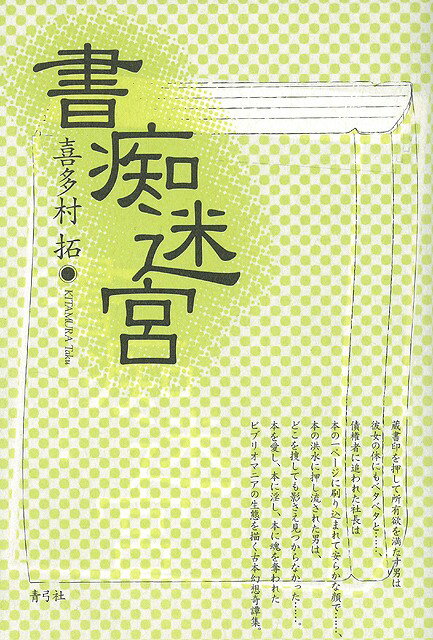 書痴迷宮
喜多村 拓
KITAMURA Taku
蔵書印を押して所有欲を満たす男は
彼女の体にもペタペタと……、
債権者に追われた社長は
本の一ページに刷り込まれて安らかな顔で……、
本の洪水に押し流された男は、
どこを捜しても影さえ見つからなかった……。
本を愛し、本に淫し、本に魂を奪われた
ビブリオマニアの生態を描く古本幻想奇譚集。
青弓社